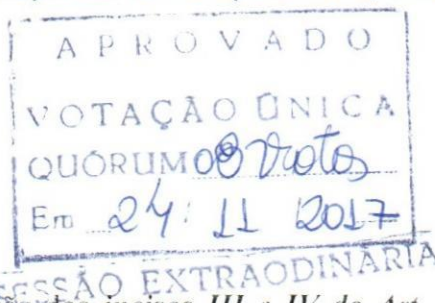 APROVADO
VOTAÇÃO ÚNICA
QUÓRUM 08 Votos
Em 24 : 11 2017
SESSÃO EXTRAODINÁRIA
incisos III e IV do Art